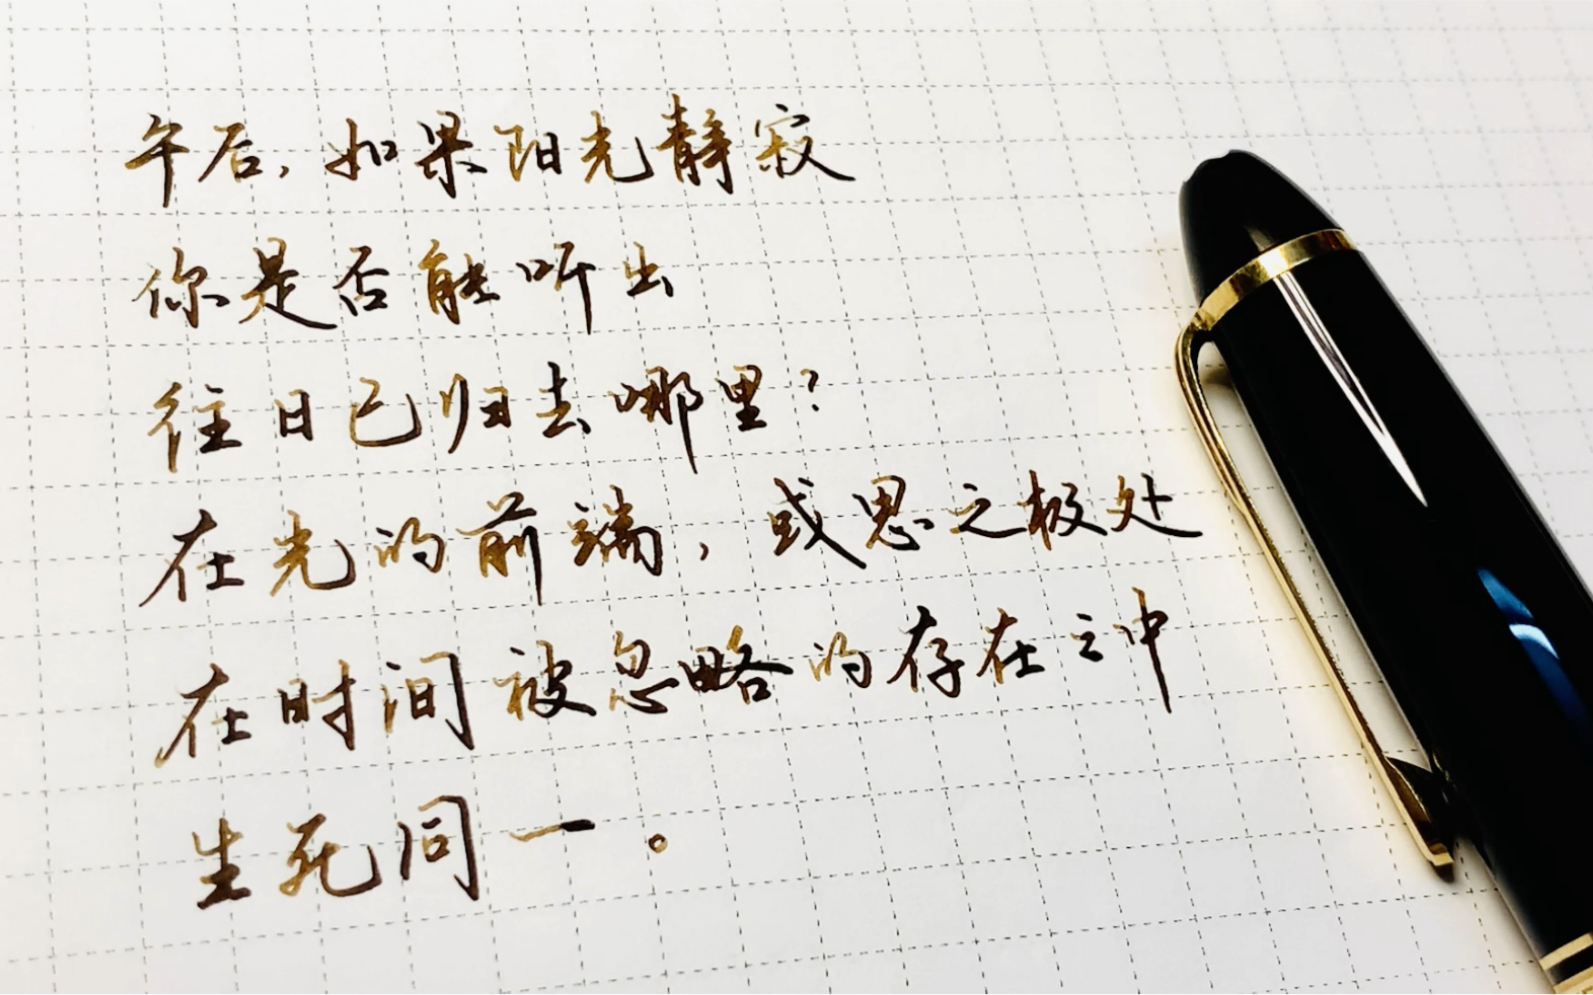 午后，如果阳光静寂
你是否能听出
往日已归去哪里？
在光的前端，或思之极处
在时间被忽略的存在之中
生死同一。